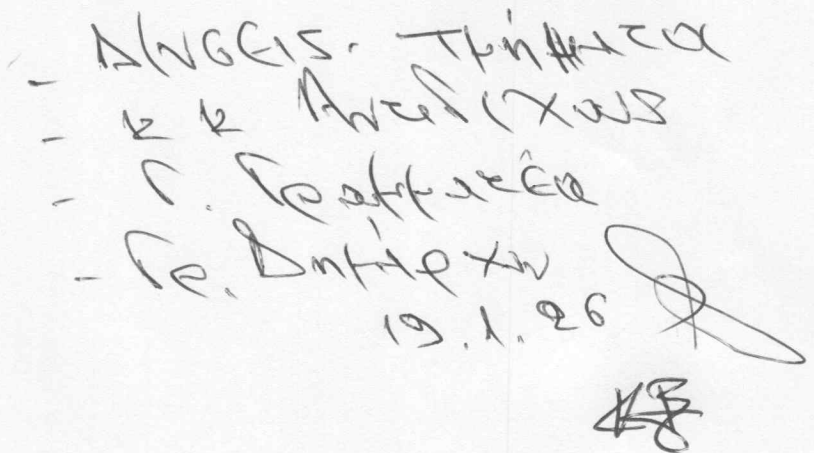 - Δ/ΝΣΕΙΣ - Τμήματα
- κ κ Αντ/χους
- Γ. Γραμματέα
- Γρ. Δημάρχου
19.1.26